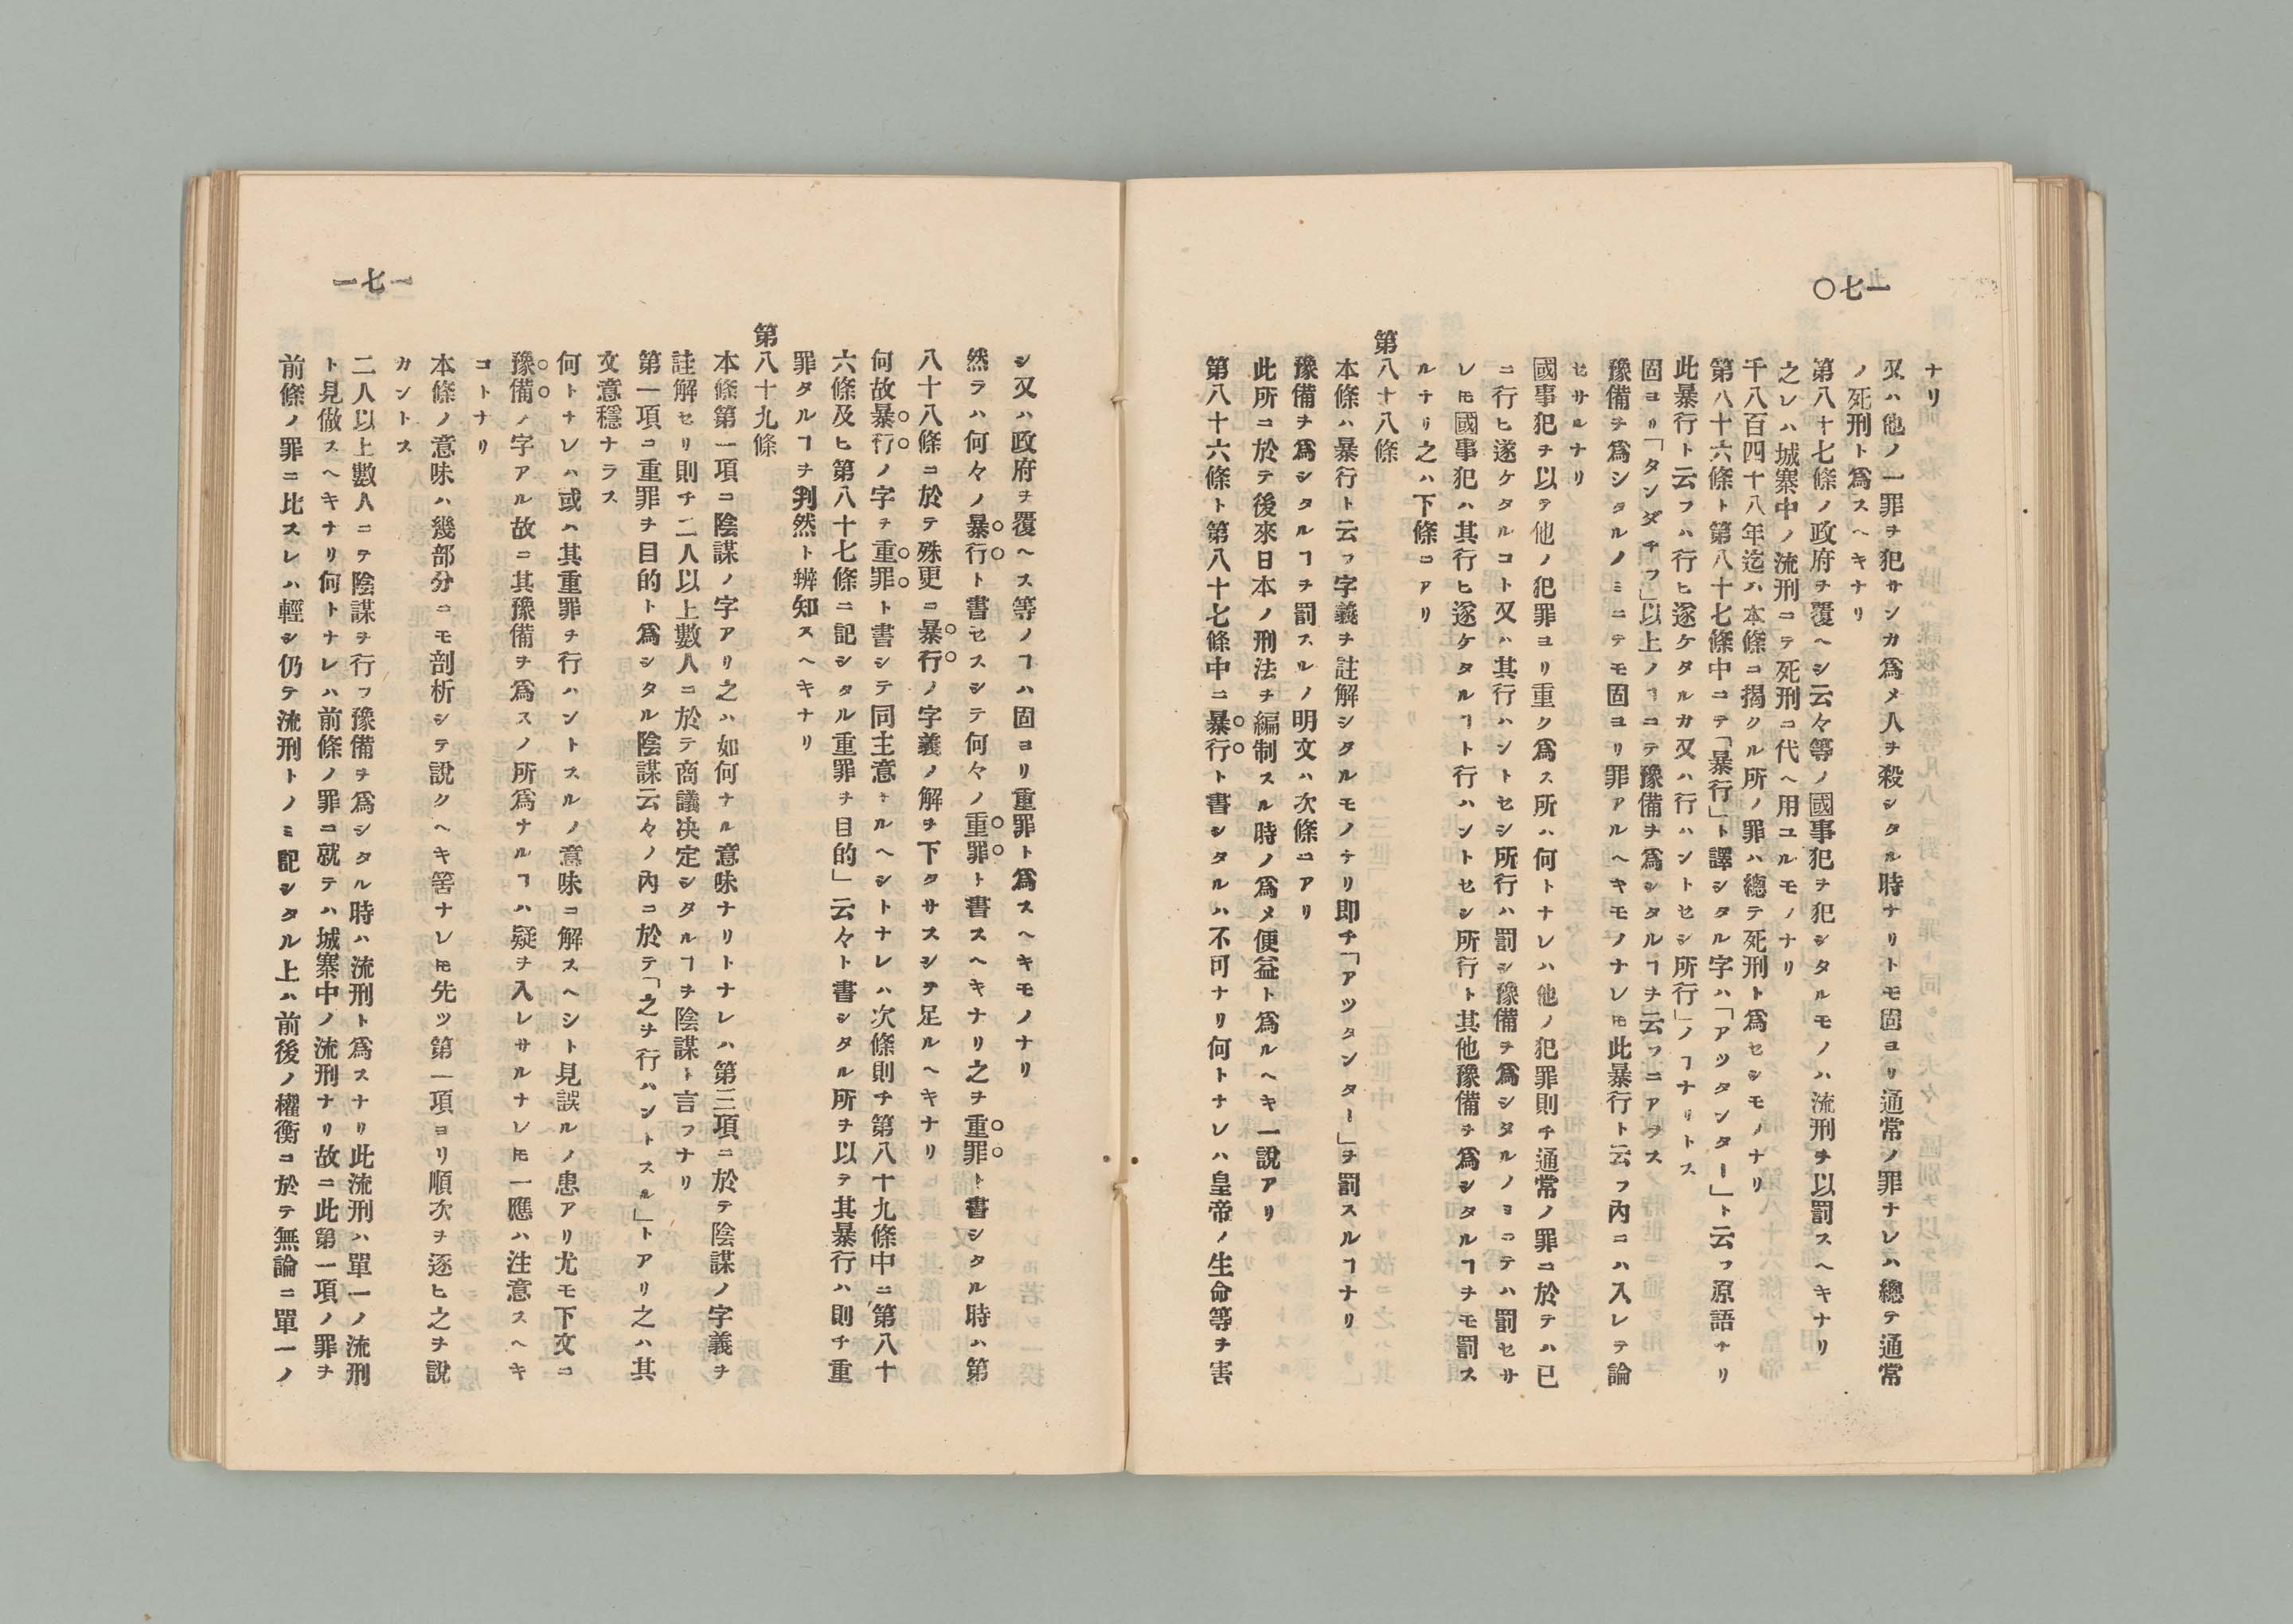 一七〇
ナリ
又ハ他ノ一罪ヲ犯サンカ爲メ人ヲ殺シタル時ナリトモ固ヨリ通常ノ罪ナレハ總テ通常
ノ死刑ト爲スヘキナリ
第八十七條ノ政府ヲ覆ヘシ云々等ノ國事犯ヲ犯シタルモノハ流刑ヲ以罰スヘキナリ
之レハ城寨中ノ流刑ニテ死刑ニ代ヘ用ユルモノナリ
千八百四十八年迄ハ本條ニ揭クル所ノ罪ハ總テ死刑ト爲セシモノナリ
第八十六條ト第八十七條中ニテ「暴行」ト譯シタル字ハ「アツタンター」ト云フ原語ナリ
此暴行ト云フハ行ヒ遂ケタルカ又ハ行ハントセシ所行」ノヿナリトス
固ヨリ「タンダチフ」以上ノヿニテ豫備ヲ爲シタルヿヲ云フニアラス
豫備ヲ爲シタルノミニテモ固ヨリ罪アルヘキモノナレ𪜈此暴行ト云フ內ニハ入レテ論
セサルナリ
國事犯ヲ以テ他ノ犯罪ヨリ重ク爲ス所ハ何トナレハ他ノ犯罪則チ通常ノ罪ニ於テハ已
ニ行ヒ遂ケタルコト又ハ其行ハントセシ所行ハ罰シ豫備ヲ爲シタルノヨニテハ罰セサ
レ𪜈國事犯ハ其行ヒ遂ケタルヿト行ハントセシ所行ト其他豫備ヲ爲シタルヿヲモ罰ス
ルナリ之ハ下條ニアリ
第八十八條
本條ハ暴行ト云フ字義ヲ註解シタルモノナリ卽チ「アツタンター」ヲ罰スルヿナリ
豫備ヲ爲シタルヿヲ罰スルノ明文ハ次條ニアリ
此所ニ於テ後來日本ノ刑法ヲ編制スル時ノ爲メ便益ト爲ルヘキ一說アリ
第八十六條ト第八十七條中ニ暴行ト書シタルハ不可ナリ何トナレハ皇帝ノ生命等ヲ害
一七一
シ又ハ政府ヲ覆ヘス等ノヿハ固ヨリ重罪ト爲スヘキモノナリ
然ラハ何々ノ暴行ト書セスシテ何々ノ重罪ト書スヘキナリ之ヲ重罪ト書シタル時ハ第
八十八條ニ於テ殊更ニ暴行ノ字義ノ解ヲ下タサスシテ足ルヘキナリ
何故暴行ノ字ヲ重罪ト書シテ同主意ナルヘシトナレハ次條則チ第八十九條中ニ第八十
六條及ヒ第八十七條ニ記シタル重罪ヲ目的」云々ト書シタル所ヲ以テ其暴行ハ則チ重
罪タルヿヲ判然ト辨知スヘキナリ
第八十九條
本條第一項ニ陰謀ノ字アリ之ハ如何ナル意味ナリトナレハ第三項ニ於テ陰謀ノ字義ヲ
註解セリ則チ二人以上數人ニ於テ商議決定シタルヿヲ陰謀ト言フナリ
第一項ニ重罪ヲ目的ト爲シタル陰謀云々ノ內ニ於テ「之ヲ行ハントスル」トアリ之ハ其
文意穩ナラス
何トナレハ或ハ其重罪ヲ行ハントスルノ意味ニ解スヘシト見誤ルノ患アリ尤モ下文ニ
豫備ノ字アル故ニ其豫備ヲ爲スノ所爲ナルヿハ疑ヲ入レサルナレ𪜈一應ハ注意スヘキ
コトナリ
本條ノ意味ハ幾部分ニモ剖析シテ說クヘキ筈ナレ𪜈先ツ第一項ヨリ順次ヲ逐ヒ之ヲ說
カントス
二人以上數人ニテ陰謀ヲ行フ豫備ヲ爲シタル時ハ流刑ト爲スナリ此流刑ハ單一ノ流刑
ト見做スヘキナリ何トナレハ前條ノ罪ニ就テハ城寨中ノ流刑ナリ故ニ此第一項ノ罪ヲ
前條ノ罪ニ比スレハ輕シ仍テ流刑トノミ記シタル上ハ前後ノ權衡ニ於テ無論ニ單一ノ